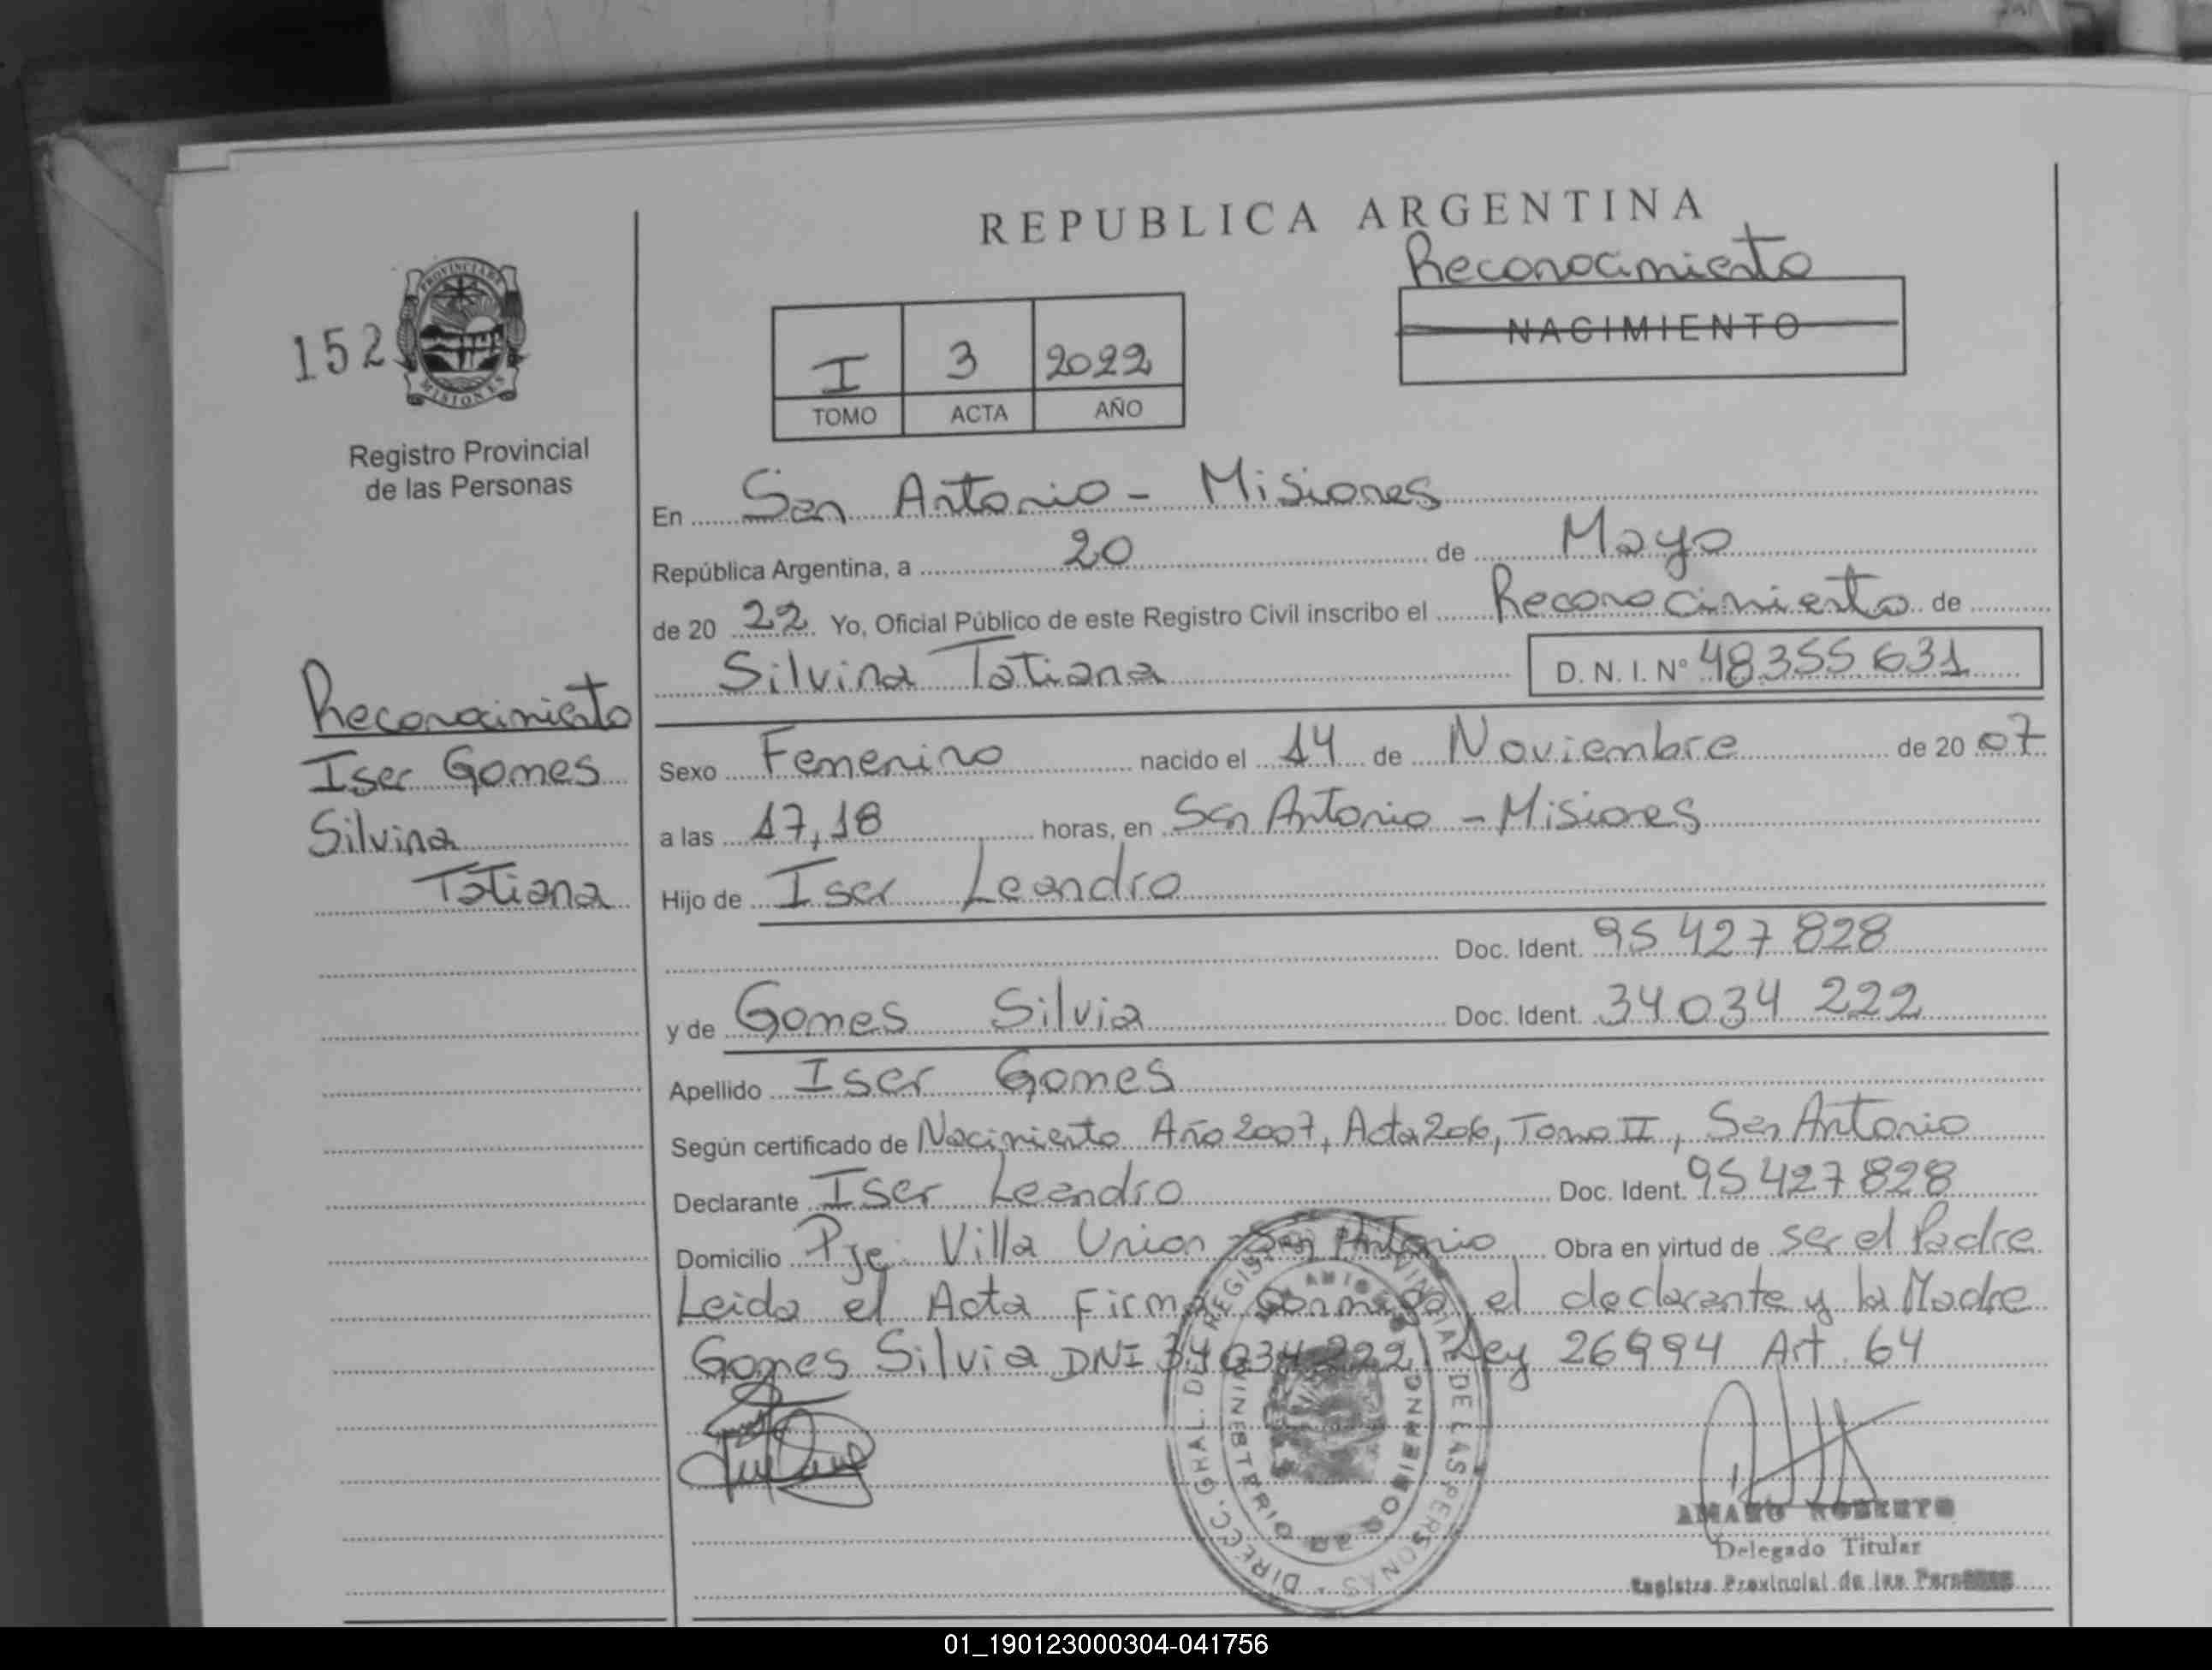 REPUBLICA ARGENTINA
Reconocimiento
NACIMIENTO
152
PROVINCIA DE
MISIONES
Registro Provincial
de las Personas
I 3 2022
TOMO ACTA AÑO
En San Antonio - Misiones
República Argentina, a 20 de Mayo
de 20 22 Yo, Oficial Público de este Registro Civil inscribo el Reconocimiento de
Silvina Tatiana D. N. I. Nº 48355631
Reconocimiento
Iser Gomes
Silvina
Tatiana
Sexo Femenino nacido el 14 de Noviembre de 20 07
a las 17,18 horas, en San Antonio - Misiones
Hijo de Iser Leandro
Doc. Ident. 95 427 828
y de Gomes Silvia Doc. Ident. 34 034 222
Apellido Iser Gomes
Según certificado de Nacimiento Año 2007, Acta 206, Tomo II, San Antonio
Declarante Iser Leandro Doc. Ident. 95 427 828
Domicilio Pje. Villa Union - San Antonio Obra en virtud de ser el Padre
Leida el Acta Firma conmigo el declarante y la Madre
Gomes Silvia DNI 34034222 Ley 26994 Art. 64
DIRECC. GRAL. DE REGISTRO PROVINCIAL DE LAS PERSONAS
MINISTERIO DE GOBIERNO
AMARO ROBERTO
Delegado Titular
Registro Provincial de las Personas
01_190123000304-041756